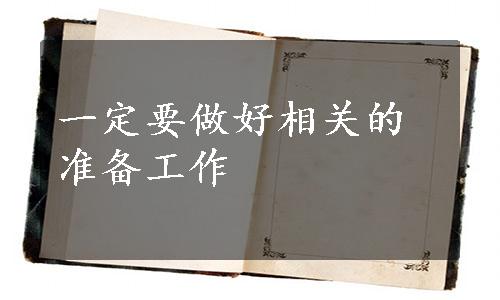 一定要做好相关的
准备工作